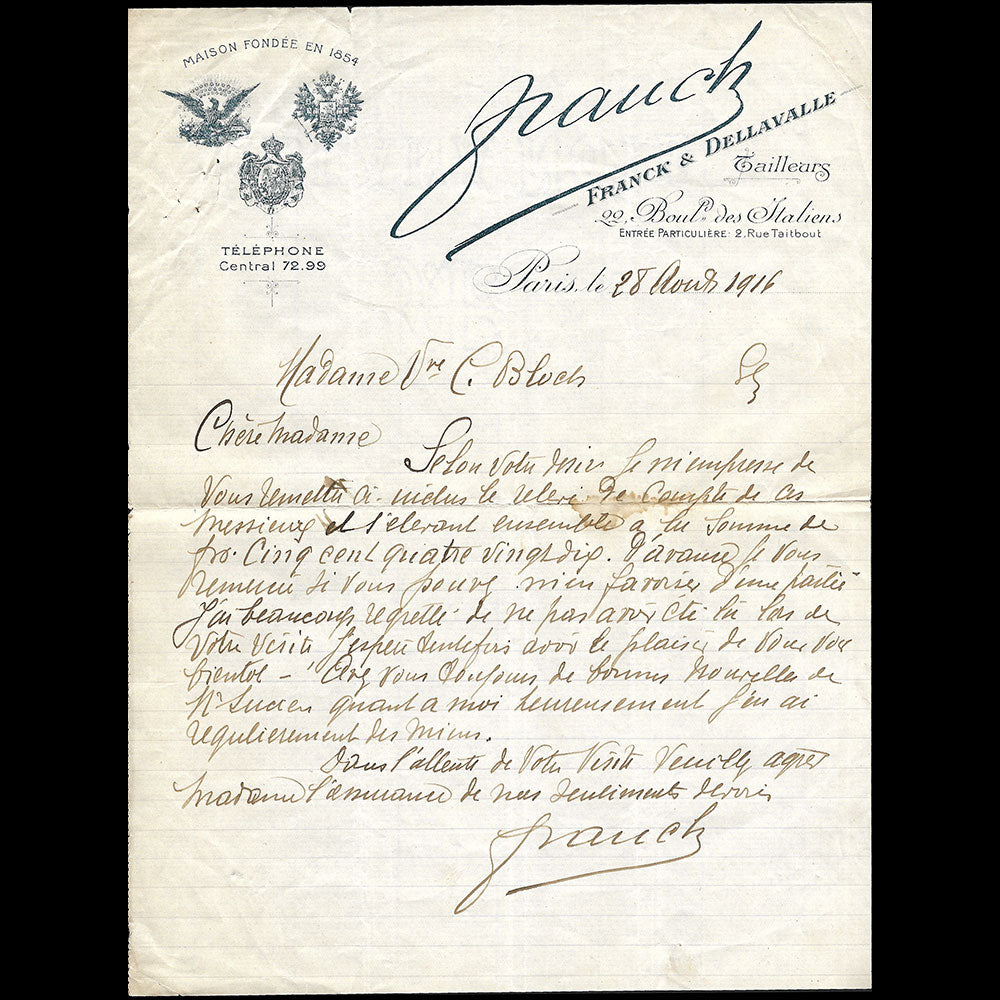 MAISON FONDÉE EN 1854
Franck
FRANCK & DELLAVALLE
Tailleurs
22, Boulᵈ des Italiens
ENTRÉE PARTICULIÈRE: 2, Rue Taitbout
TÉLÉPHONE
Central 72.99
Paris, le 28 Aout 1916
Madame Vve C. Bloch
Chère Madame
Selon votre désir je m'empresse de
Vous remettre ci-inclus le relevé de Compte de ces
Messieurs et s'élevant ensemble à la Somme de
frs. Cinq cent quatre vingt dix. D'avance je vous
remercie si vous pouvez m'en favoriser d'une partie
J'ai beaucoup regretté de ne pas avoir été là lors de
Votre visite J'espère toutefois avoir le plaisir de vous voir
bientot - Avez vous toujours de bonnes nouvelles de
Mr Lucien quant a moi heureusement j'en ai
regulierement des miens.
Dans l'attente de votre visite Veuillez agréer
Madame l'assurance de nos sentiments dévoués
Franck